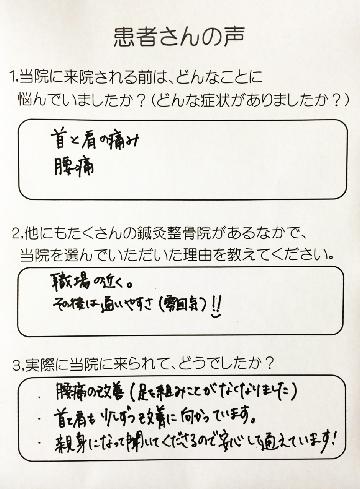 患者さんの声
1.当院に来院される前は、どんなことに
悩んでいましたか？（どんな症状がありましたか？）
首と肩の痛み
腰痛
2.他にもたくさんの鍼灸整骨院があるなかで、
当院を選んでいただいた理由を教えてください。
職場の近く。
その後は通いやすさ（雰囲気）!!
3.実際に当院に来られて、どうでしたか？
・腰痛の改善（足を組みことがなくなりました）
・首と肩も少しずつ改善に向かっています。
・親身になって聞いてくださるので安心して通えています！